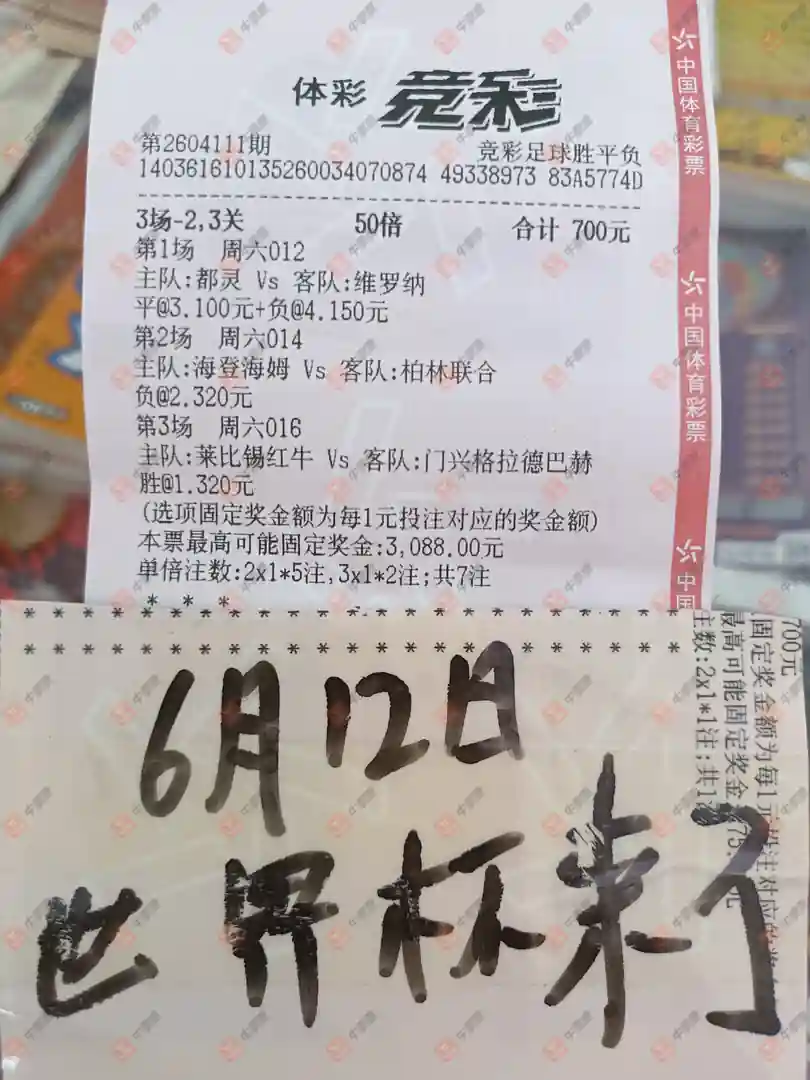 体彩 竞彩
第2604111期 竞彩足球胜平负
14036161013526003407​0874 49338973 83A5774D
3场-2,3关 50倍 合计 700元
第1场 周六012
主队:都灵 Vs 客队:维罗纳
平@3.100元+负@4.150元
第2场 周六014
主队:海登海姆 Vs 客队:柏林联合
负@2.320元
第3场 周六016
主队:莱比锡红牛 Vs 客队:门兴格拉德巴赫
胜@1.320元
(选项固定奖金额为每1元投注对应的奖金额)
本票最高可能固定奖金:3,088.00元
单倍注数:2x1*5注,3x1*2注;共7注
中国体育彩票
中国体育彩票
中国
700元
固定奖金额为每1元投注对应的奖
最高可能固定奖金
主数:2x1*1注;共1
6月12日
世界杯来了